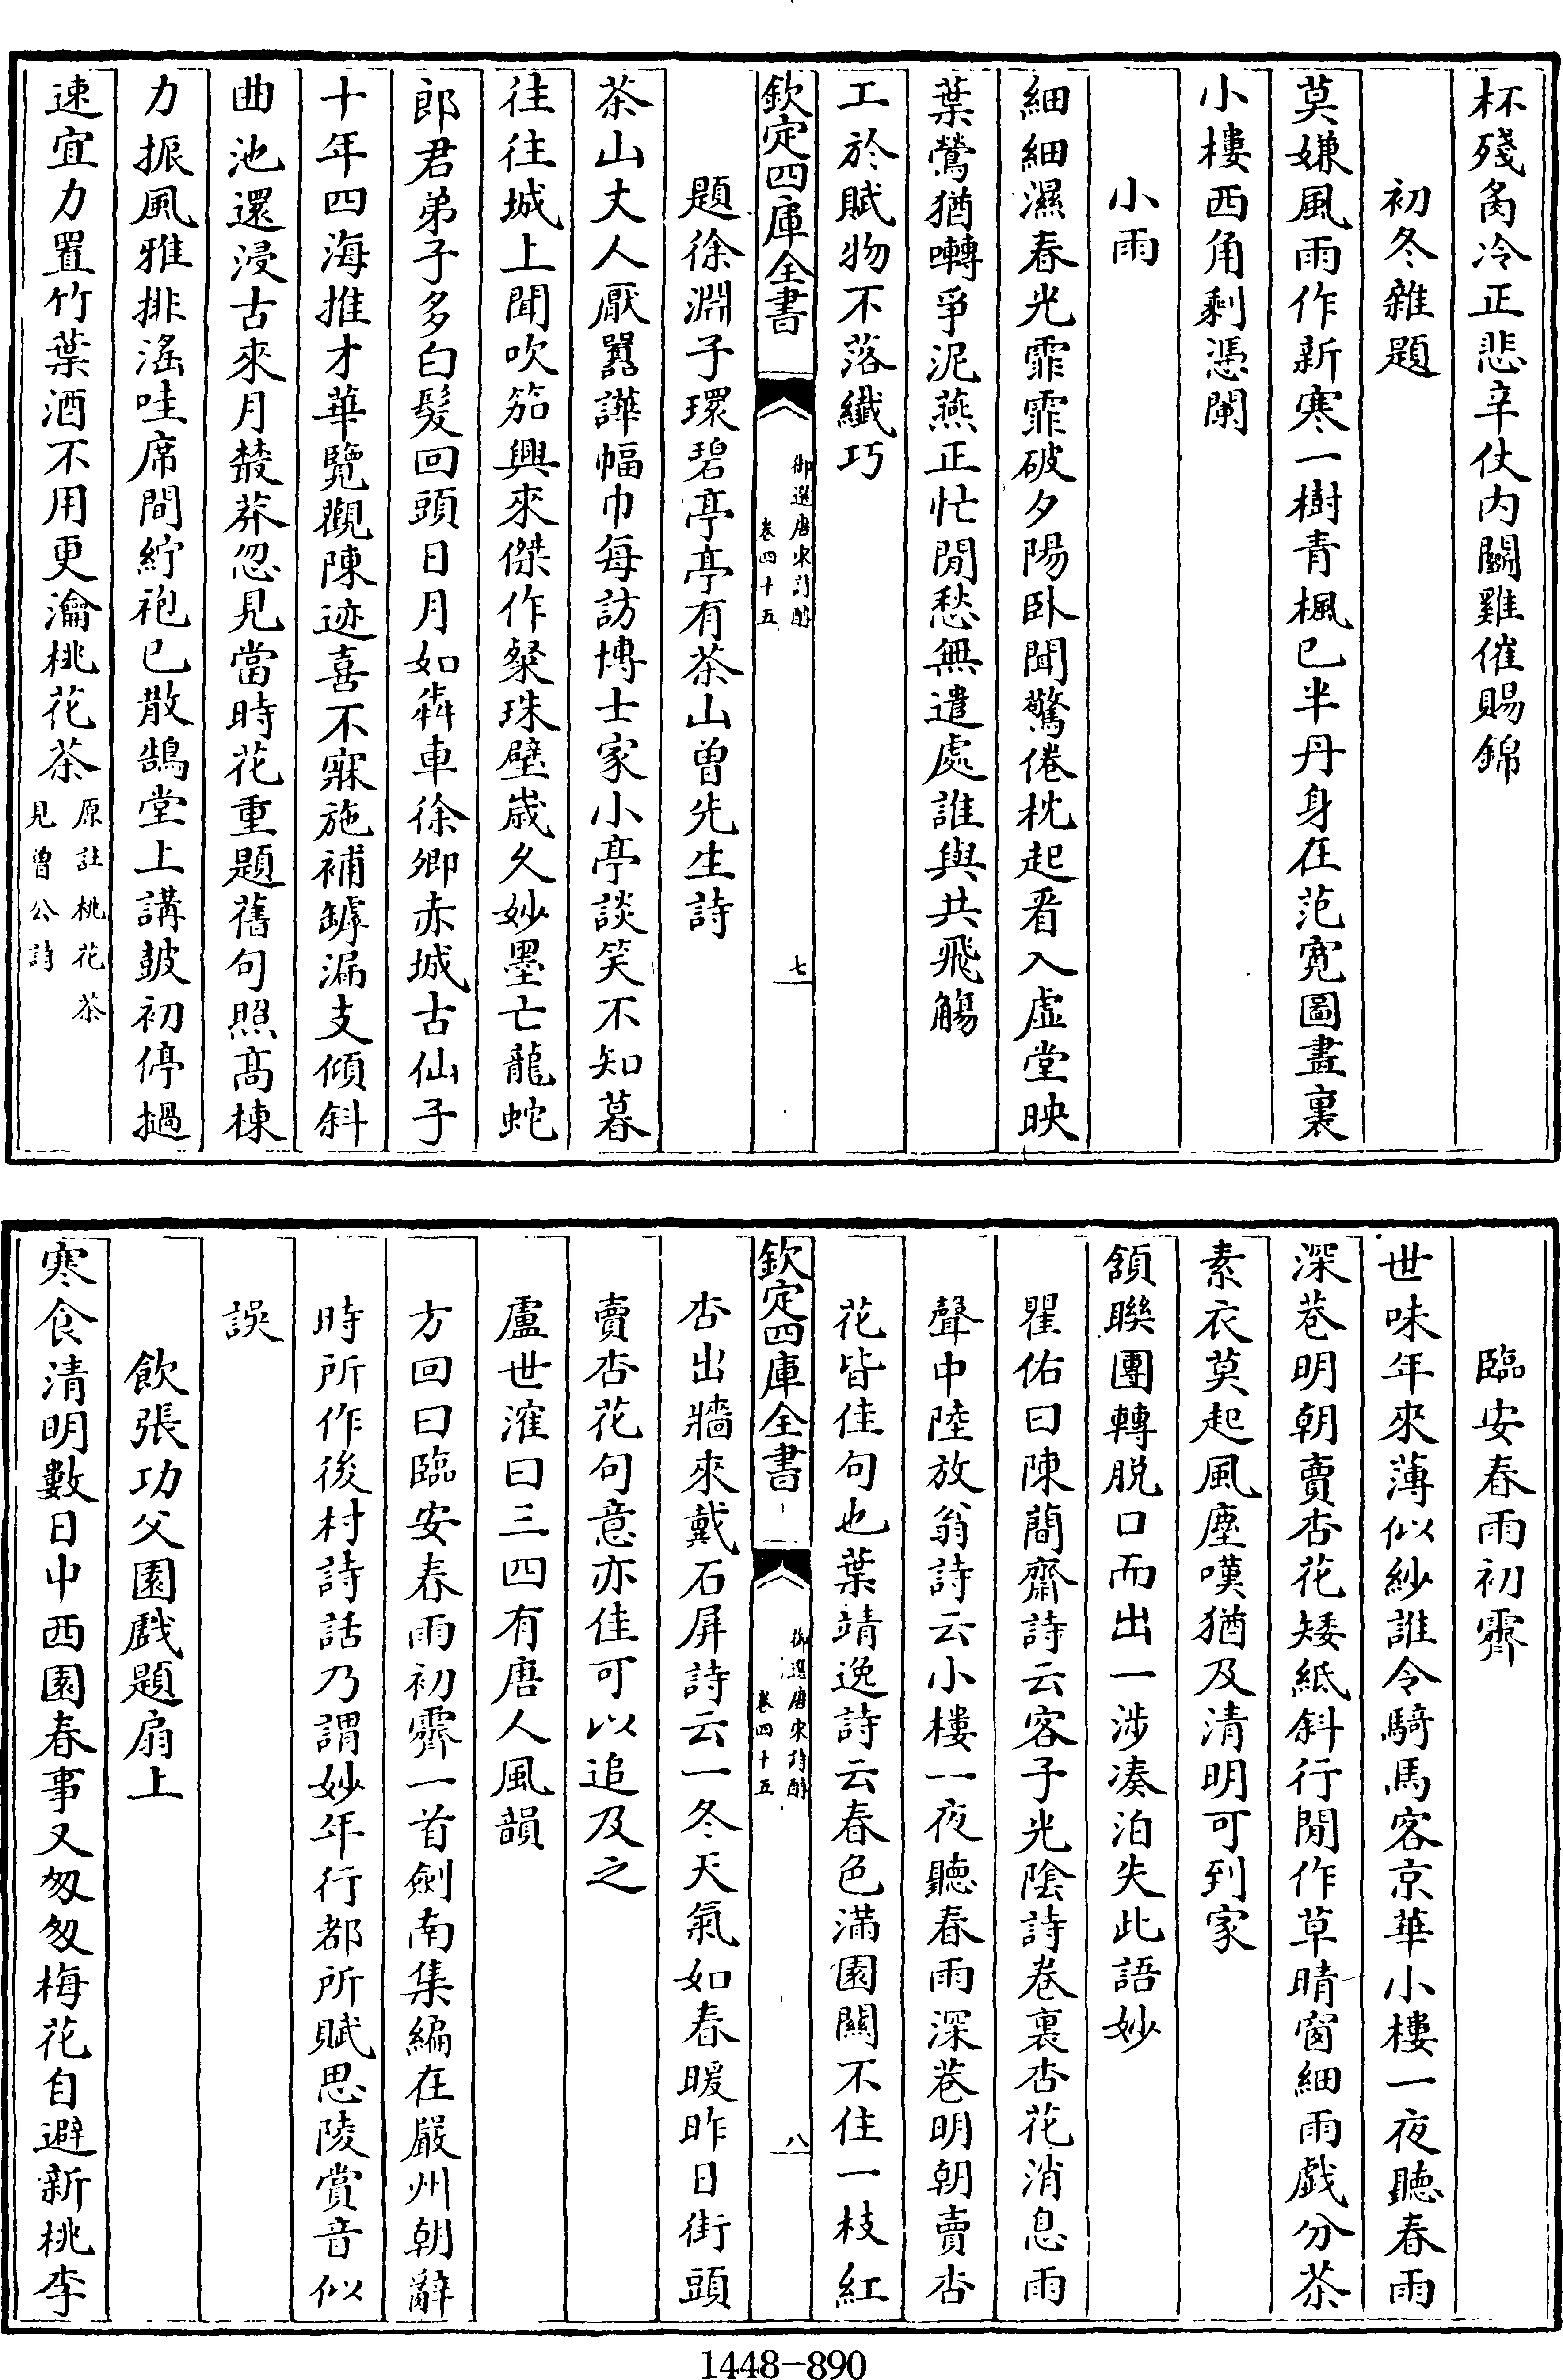 杯殘臠冷正悲辛仗内鬭雞催賜錦
初冬雜題
莫嫌風雨作新寒一樹青楓已半丹身在范寛圖畫裏
小樓西角剩憑闌
小雨
細細濕春光霏霏破夕陽卧聞驚倦枕起看入虛堂映
葉鶯猶囀爭泥燕正忙閒愁無遣處誰與共飛觴
工於賦物不落纖巧
欽定四庫全書
御選唐宋詩醇
卷四十五
七
題徐淵子環碧亭亭有茶山曾先生詩
茶山丈人厭囂譁幅巾每訪博士家小亭談笑不知暮
往往城上聞吹笳興來傑作粲珠璧嵗久妙墨亡龍蛇
郎君弟子多白髮回頭日月如犇車徐卿赤城古仙子
十年四海推才華覽觀陳迹喜不寐施補罅漏支傾斜
曲池還浸古來月藂莽忽見當時花重題舊句照髙棟
力振風雅排滛哇席間紵袍已散鵠堂上講鼓初停撾
速宜力置竹葉酒不用更瀹桃花茶原註桃花茶
見曾公詩
臨安春雨初霽
世味年來薄似紗誰令騎馬客京華小樓一夜聽春雨
深巷明朝賣杏花矮紙斜行閒作草晴窗細雨戲分茶
素衣莫起風塵嘆猶及清明可到家
頷聯團轉脱口而出一涉凑泊失此語妙
瞿佑曰陳簡齋詩云客子光陰詩卷裏杏花消息雨
聲中陸放翁詩云小樓一夜聽春雨深巷明朝賣杏
花皆佳句也葉靖逸詩云春色滿園關不住一枝紅
欽定四庫全書
御選唐宋詩醇
卷四十五
八
杏出牆來戴石屏詩云一冬天氣如春暖昨日街頭
賣杏花句意亦佳可以追及之
盧世㴶曰三四有唐人風韻
方回曰臨安春雨初霽一首劍南集編在嚴州朝辭
時所作後村詩話乃謂妙年行都所賦思陵賞音似
誤
飲張功父園戲題扇上
寒食清明數日中西園春事又匆匆梅花自避新桃李
1448-890